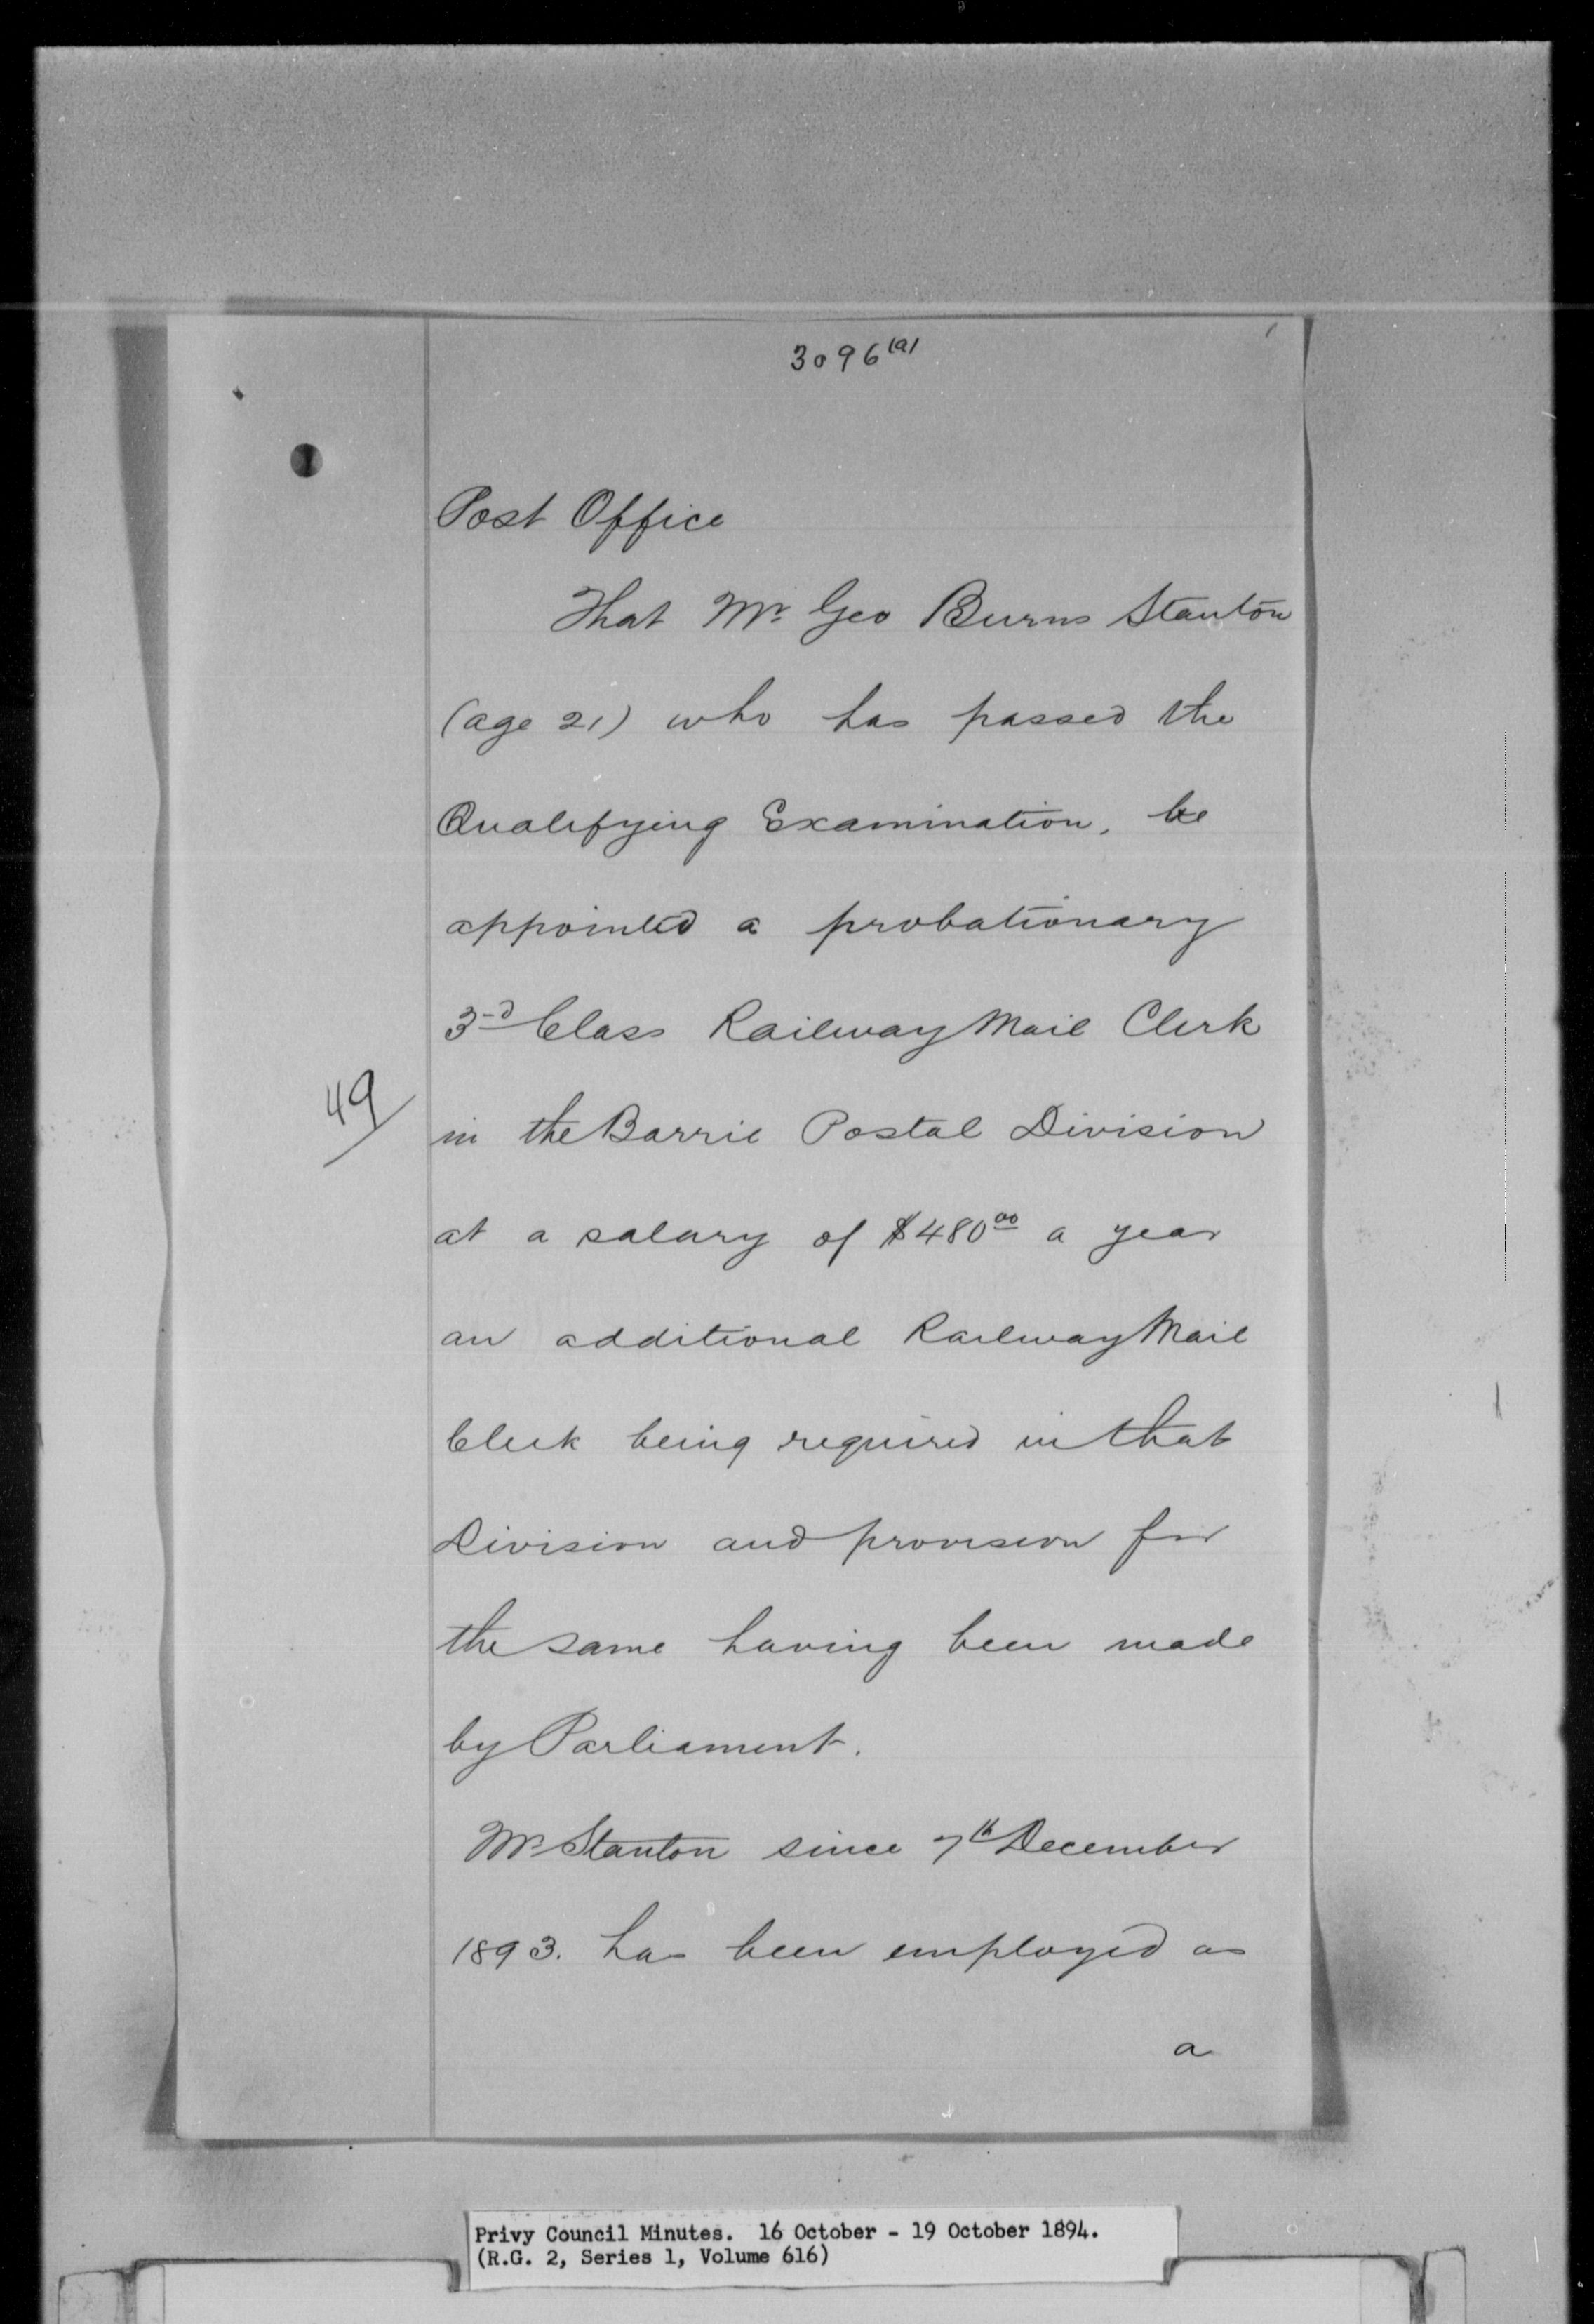 3096(a)
Post Office
That Mr Geo Burns Stanton
(age 21) who has passed the
Qualifying Examination, be
appointed a probationary
3rd Class Railway Mail Clerk
49/
in the Barrie Postal Division
at a salary of $480 00 a year
an additional Railway Mail
Clerk being required in that
Division and provision for
the same having been made
by Parliament.
Mr Stanton since 7th December
1893. has been employed as
a
Privy Council Minutes. 16 October - 19 October 1894.
(R.G. 2, Series 1, Volume 616)